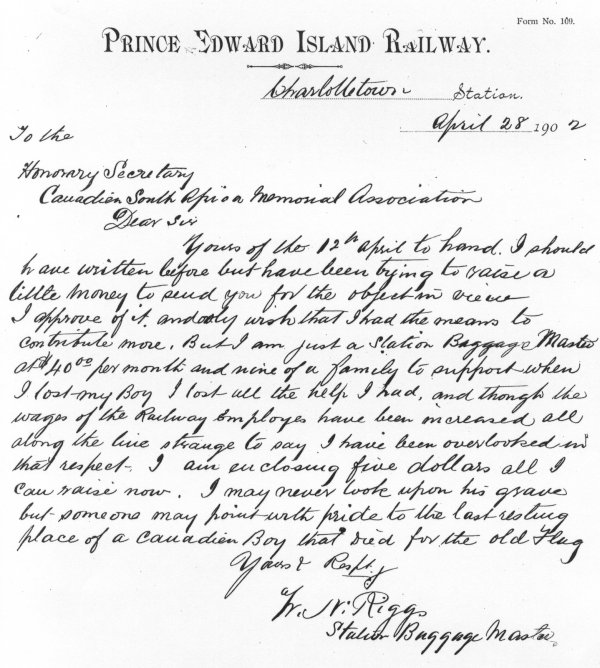 Form No. 109.
PRINCE EDWARD ISLAND RAILWAY.
Charlottetown Station.
April 28 1902
To the
Honorary Secretary
Canadien South Africa Memorial Association
Dear Sir
Yours of the 12th April to hand. I should
have written before but have been trying to raise a
little money to send you for the object in view
I approve of it. and only wish that I had the means to
contribute more. But I am just a Station Baggage Master
at $40.00 per month and nine of a family to support when
I lost my Boy I lost all the help I had, and though the
wages of the Railway Employes have been increased all
along the line strange to say I have been overlooked in
that respect. I am enclosing five dollars all I
can raise now. I may never look upon his grave
but someone may point with pride to the last resting
place of a Canadien Boy that died for the old Flag
Yours Respt.y
W. N. Riggs
Station Baggage Master